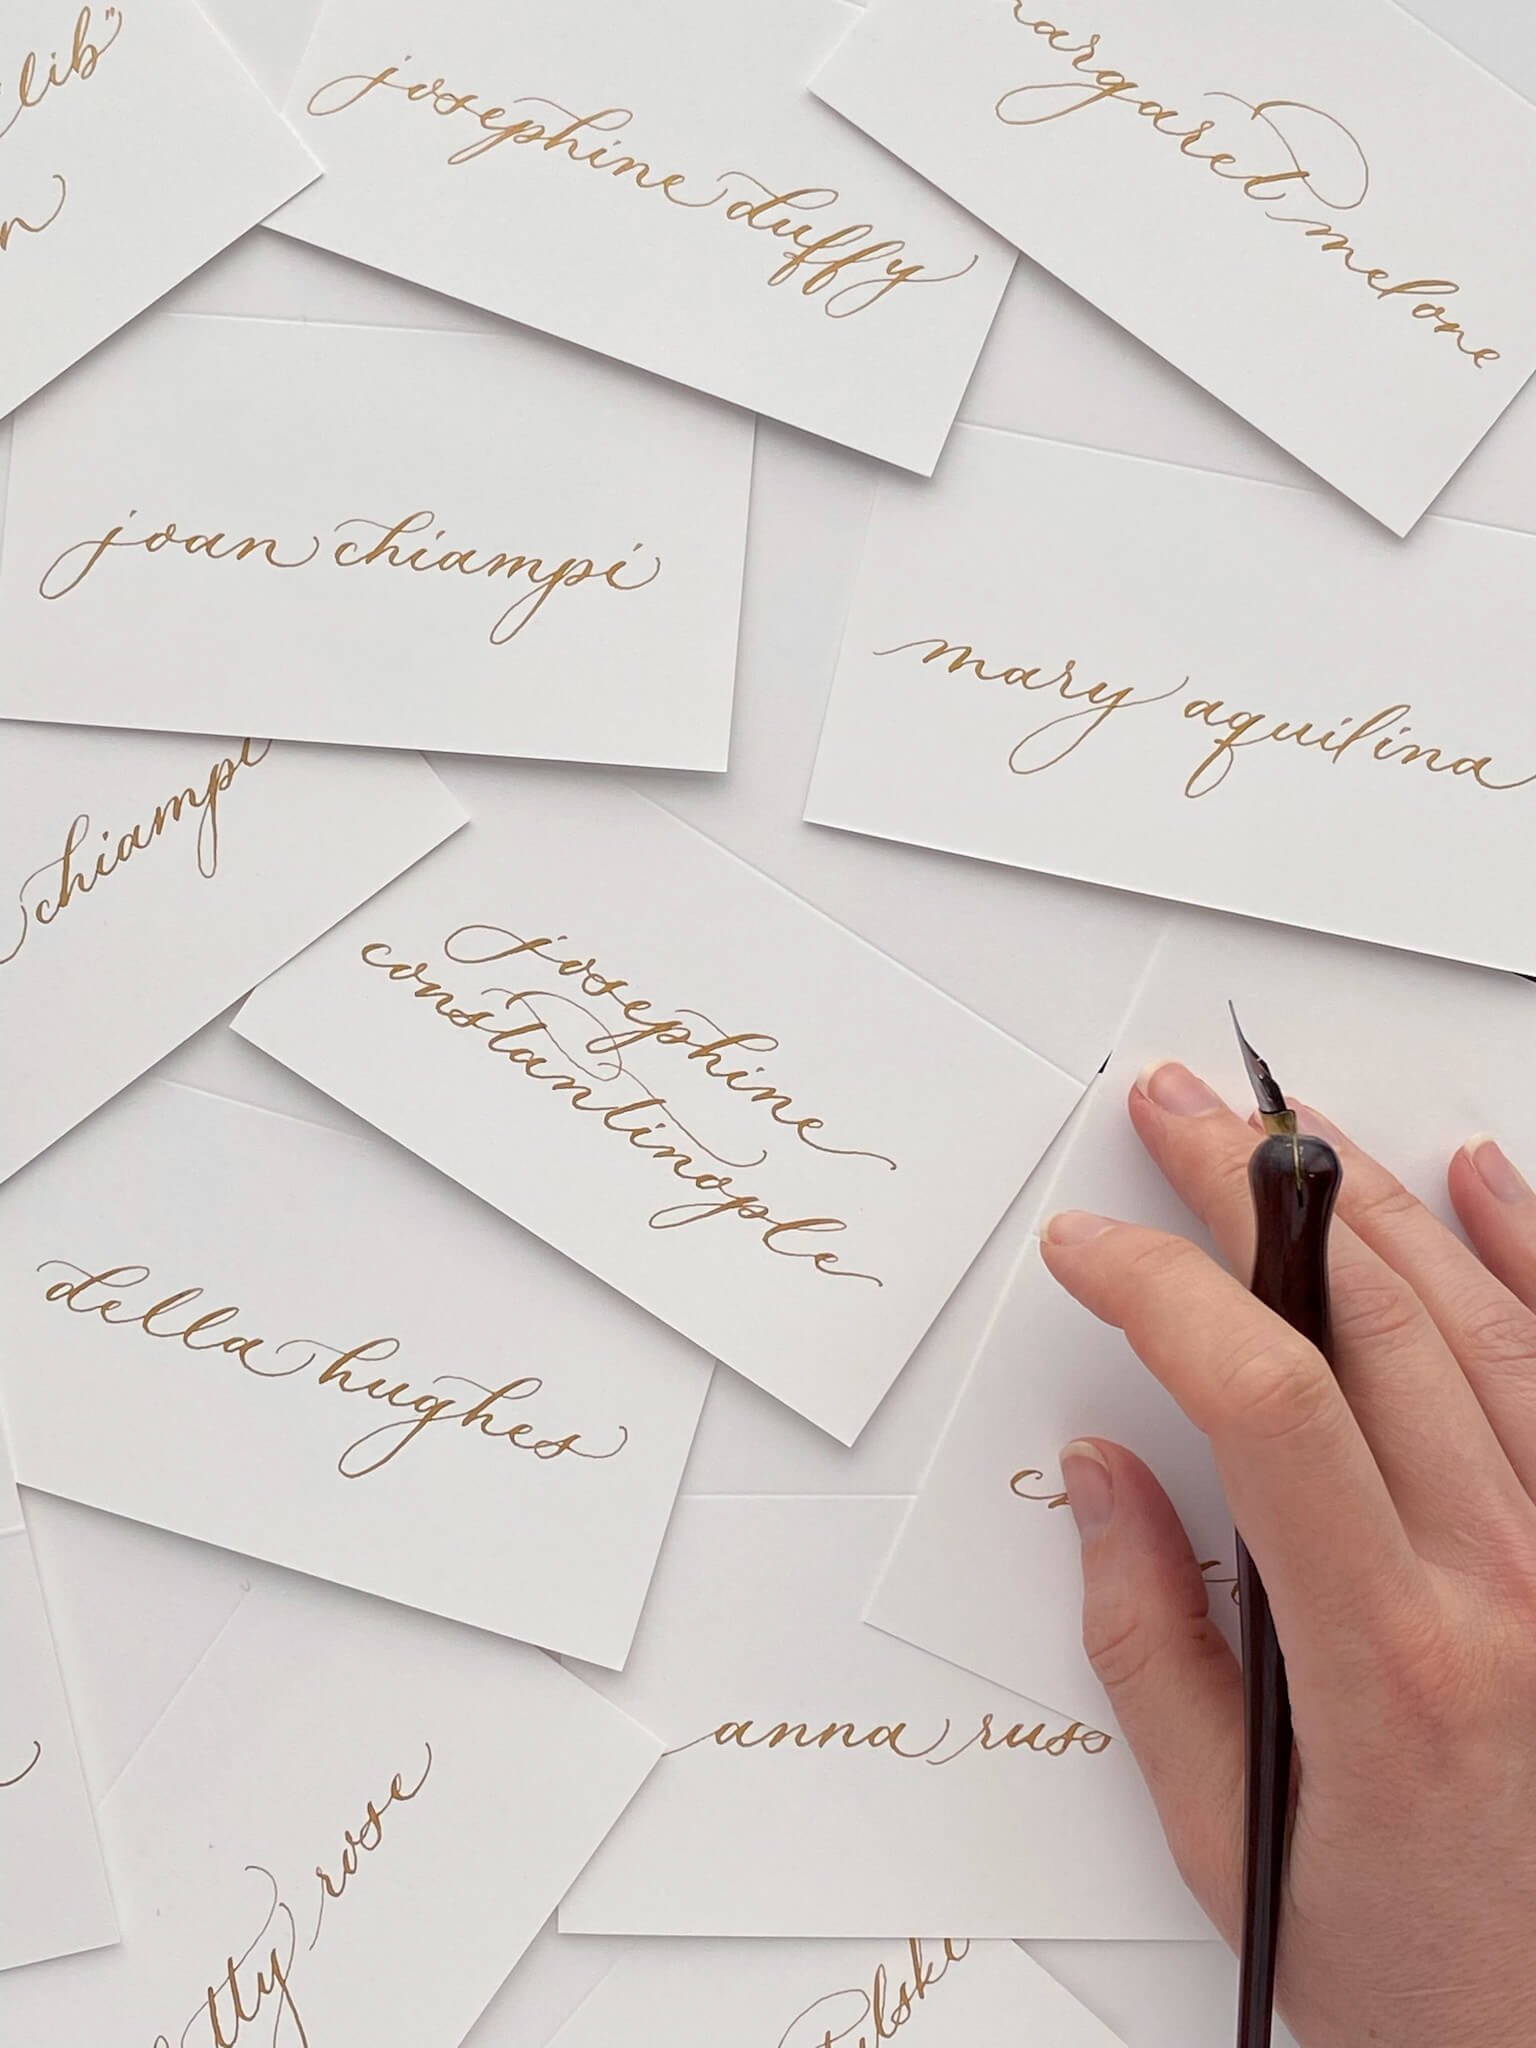 lib"
josephine duffy
margaret melone
joan chiampi
mary aquilina
chiampi
josephine
constantinople
della hughes
anna russ
rose